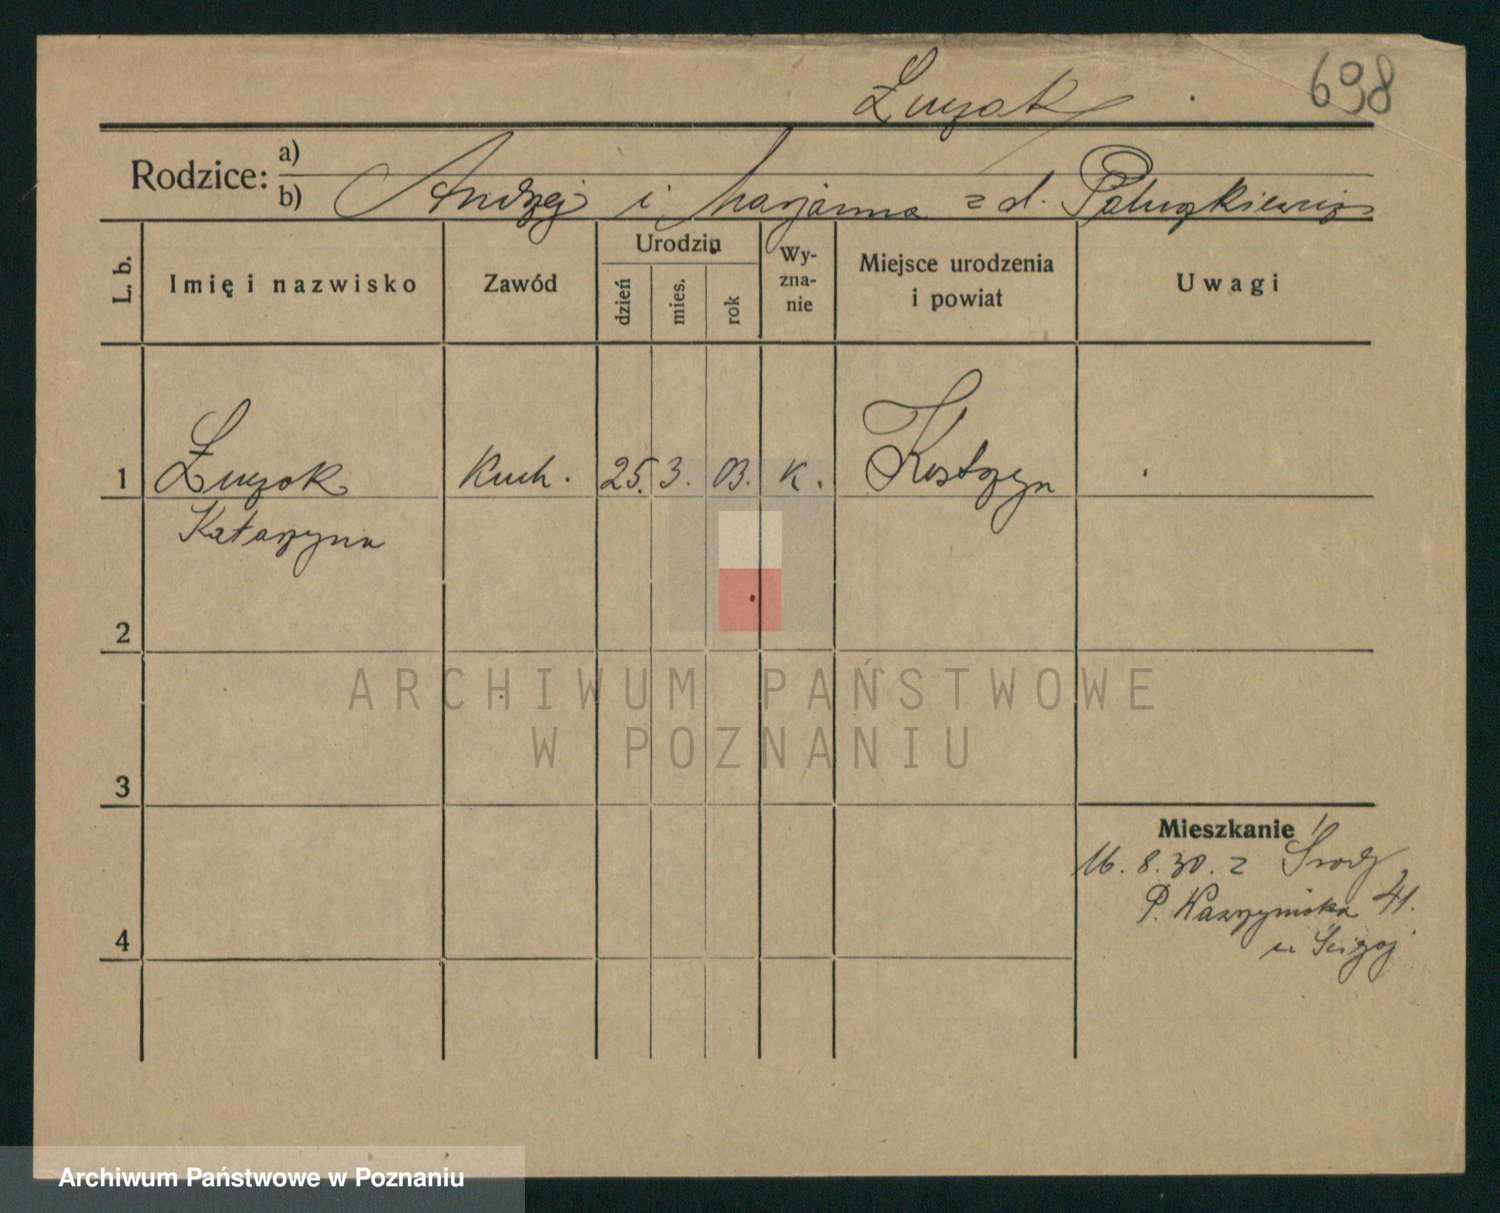 698
Łuczak
Rodzice: a)
b) Andrzej i Marjanna z d. Paluszkiewicz
L. b.
Imię i nazwisko
Zawód
Urodzin
dzień
mies.
rok
Wy-
zna-
nie
Miejsce urodzenia
i powiat
Uwagi
1 Łuczak Kuch. 25. 3. 03. K. Kostrzyn
Katarzyna
2
3
4
Mieszkanie
16. 8. 30. z Środy
41.
ARCHIWUM PAŃSTWOWE
W POZNANIU
Archiwum Państwowe w Poznaniu